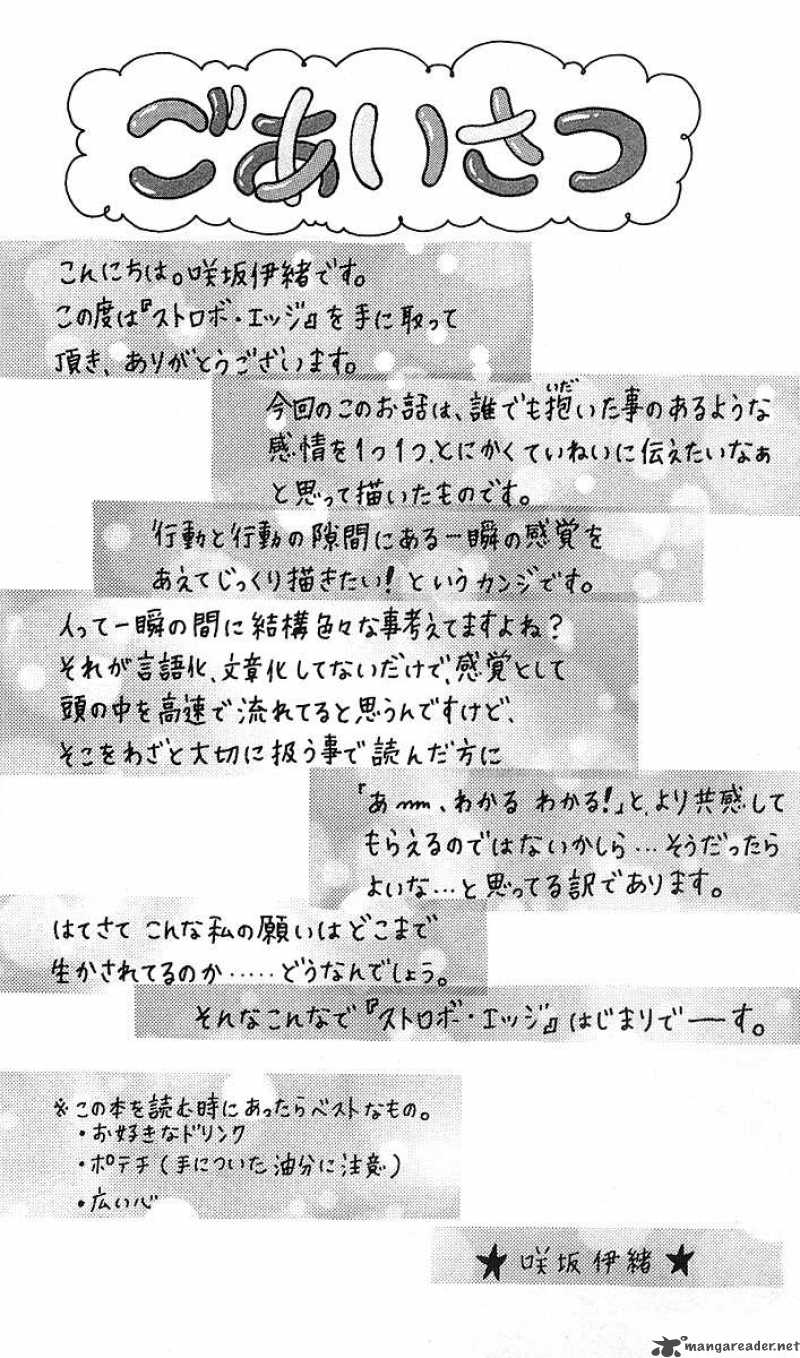 ごあいさつ
こんにちは。咲坂伊緒です。
この度は『ストロボ・エッジ』を手に取って
頂き、ありがとうございます。
今回のこのお話は、誰でも抱いた事のあるような
いだ
感情を1つ1つ、とにかくていねいに伝えたいなぁ
と思って描いたものです。
行動と行動の隙間にある一瞬の感覚を
あえてじっくり描きたい!というカンジです。
人って一瞬の間に結構色々な事考えてますよね?
それが言語化、文章化してないだけで、感覚として
頭の中を高速で流れてると思うんですけど、
そこをわざと大切に扱う事で読んだ方に
「あ〜〜、わかるわかる!」と、より共感して
もらえるのではないかしら…そうだったら
よいな…と思ってる訳であります。
はてさてこんな私の願いはどこまで
生かされてるのか……どうなんでしょう。
そんなこんなで『ストロボ・エッジ』はじまりでーす。
※この本を読む時にあったらベストなもの。
・お好きなドリンク
・ポテチ(手についた油分に注意)
・広い心
★咲坂伊緒★
mangareader.net